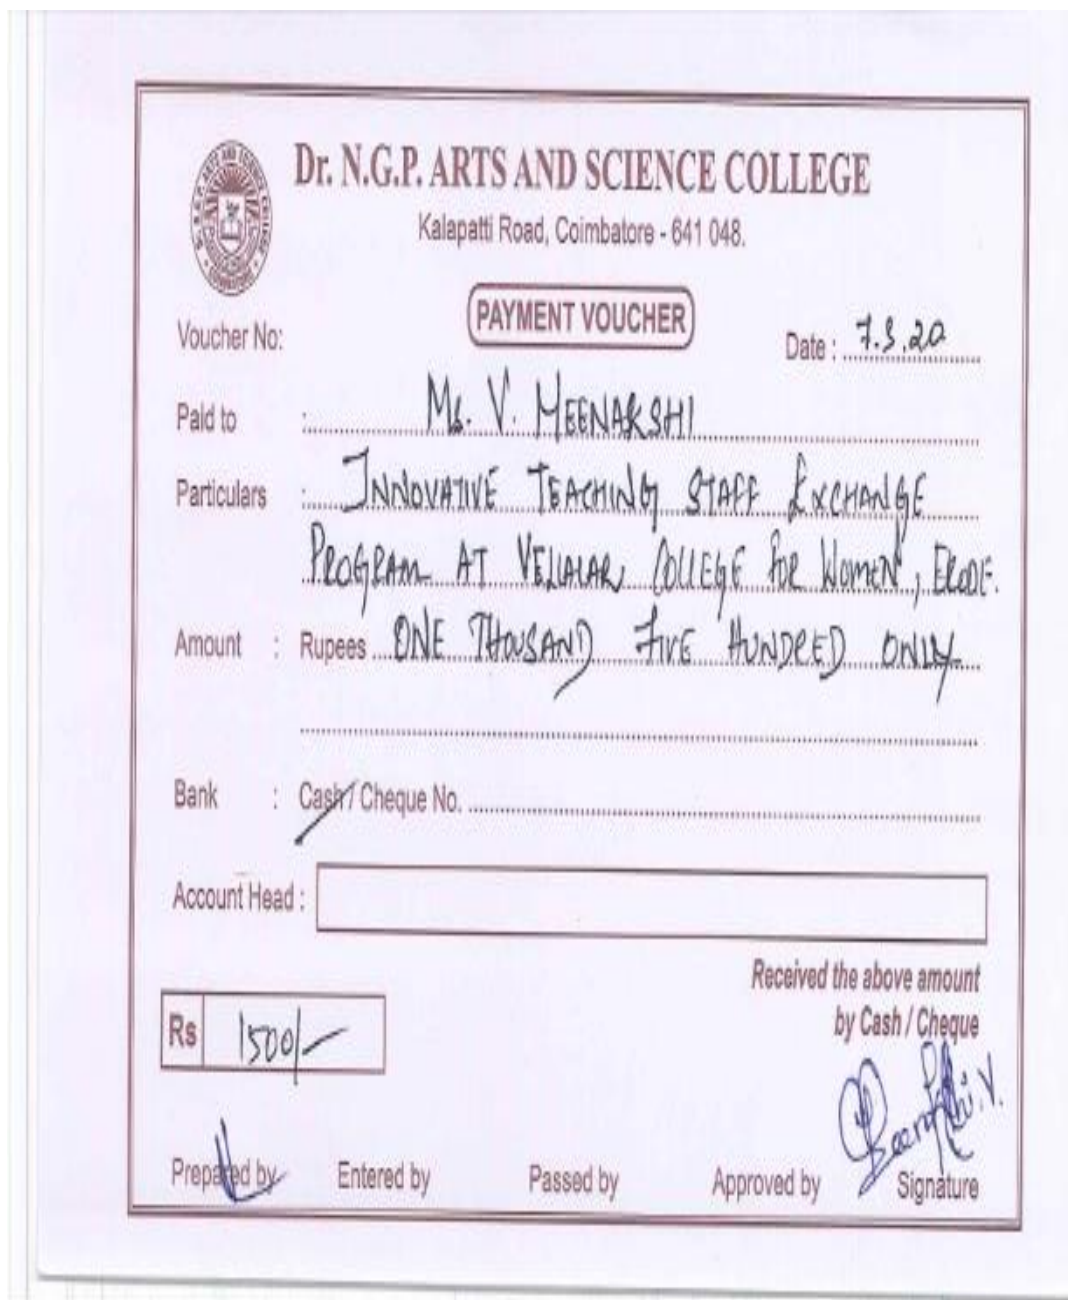 Dr. N.G.P. ARTS AND SCIENCE COLLEGE
Kalapatti Road, Coimbatore - 641 048.
PAYMENT VOUCHER
Voucher No:
Date : 7.3.20
Paid to : Ms. V. MEENAKSHI
Particulars : INNOVATIVE TEACHING STAFF EXCHANGE
PROGRAM AT VELLALAR COLLEGE FOR WOMEN, ERODE.
Amount : Rupees ONE THOUSAND FIVE HUNDRED ONLY
Bank : Cash / Cheque No.
Account Head :
Received the above amount
by Cash / Cheque
Rs 1500/-
Meenakshi.V.
Prepared by Entered by Passed by Approved by Signature